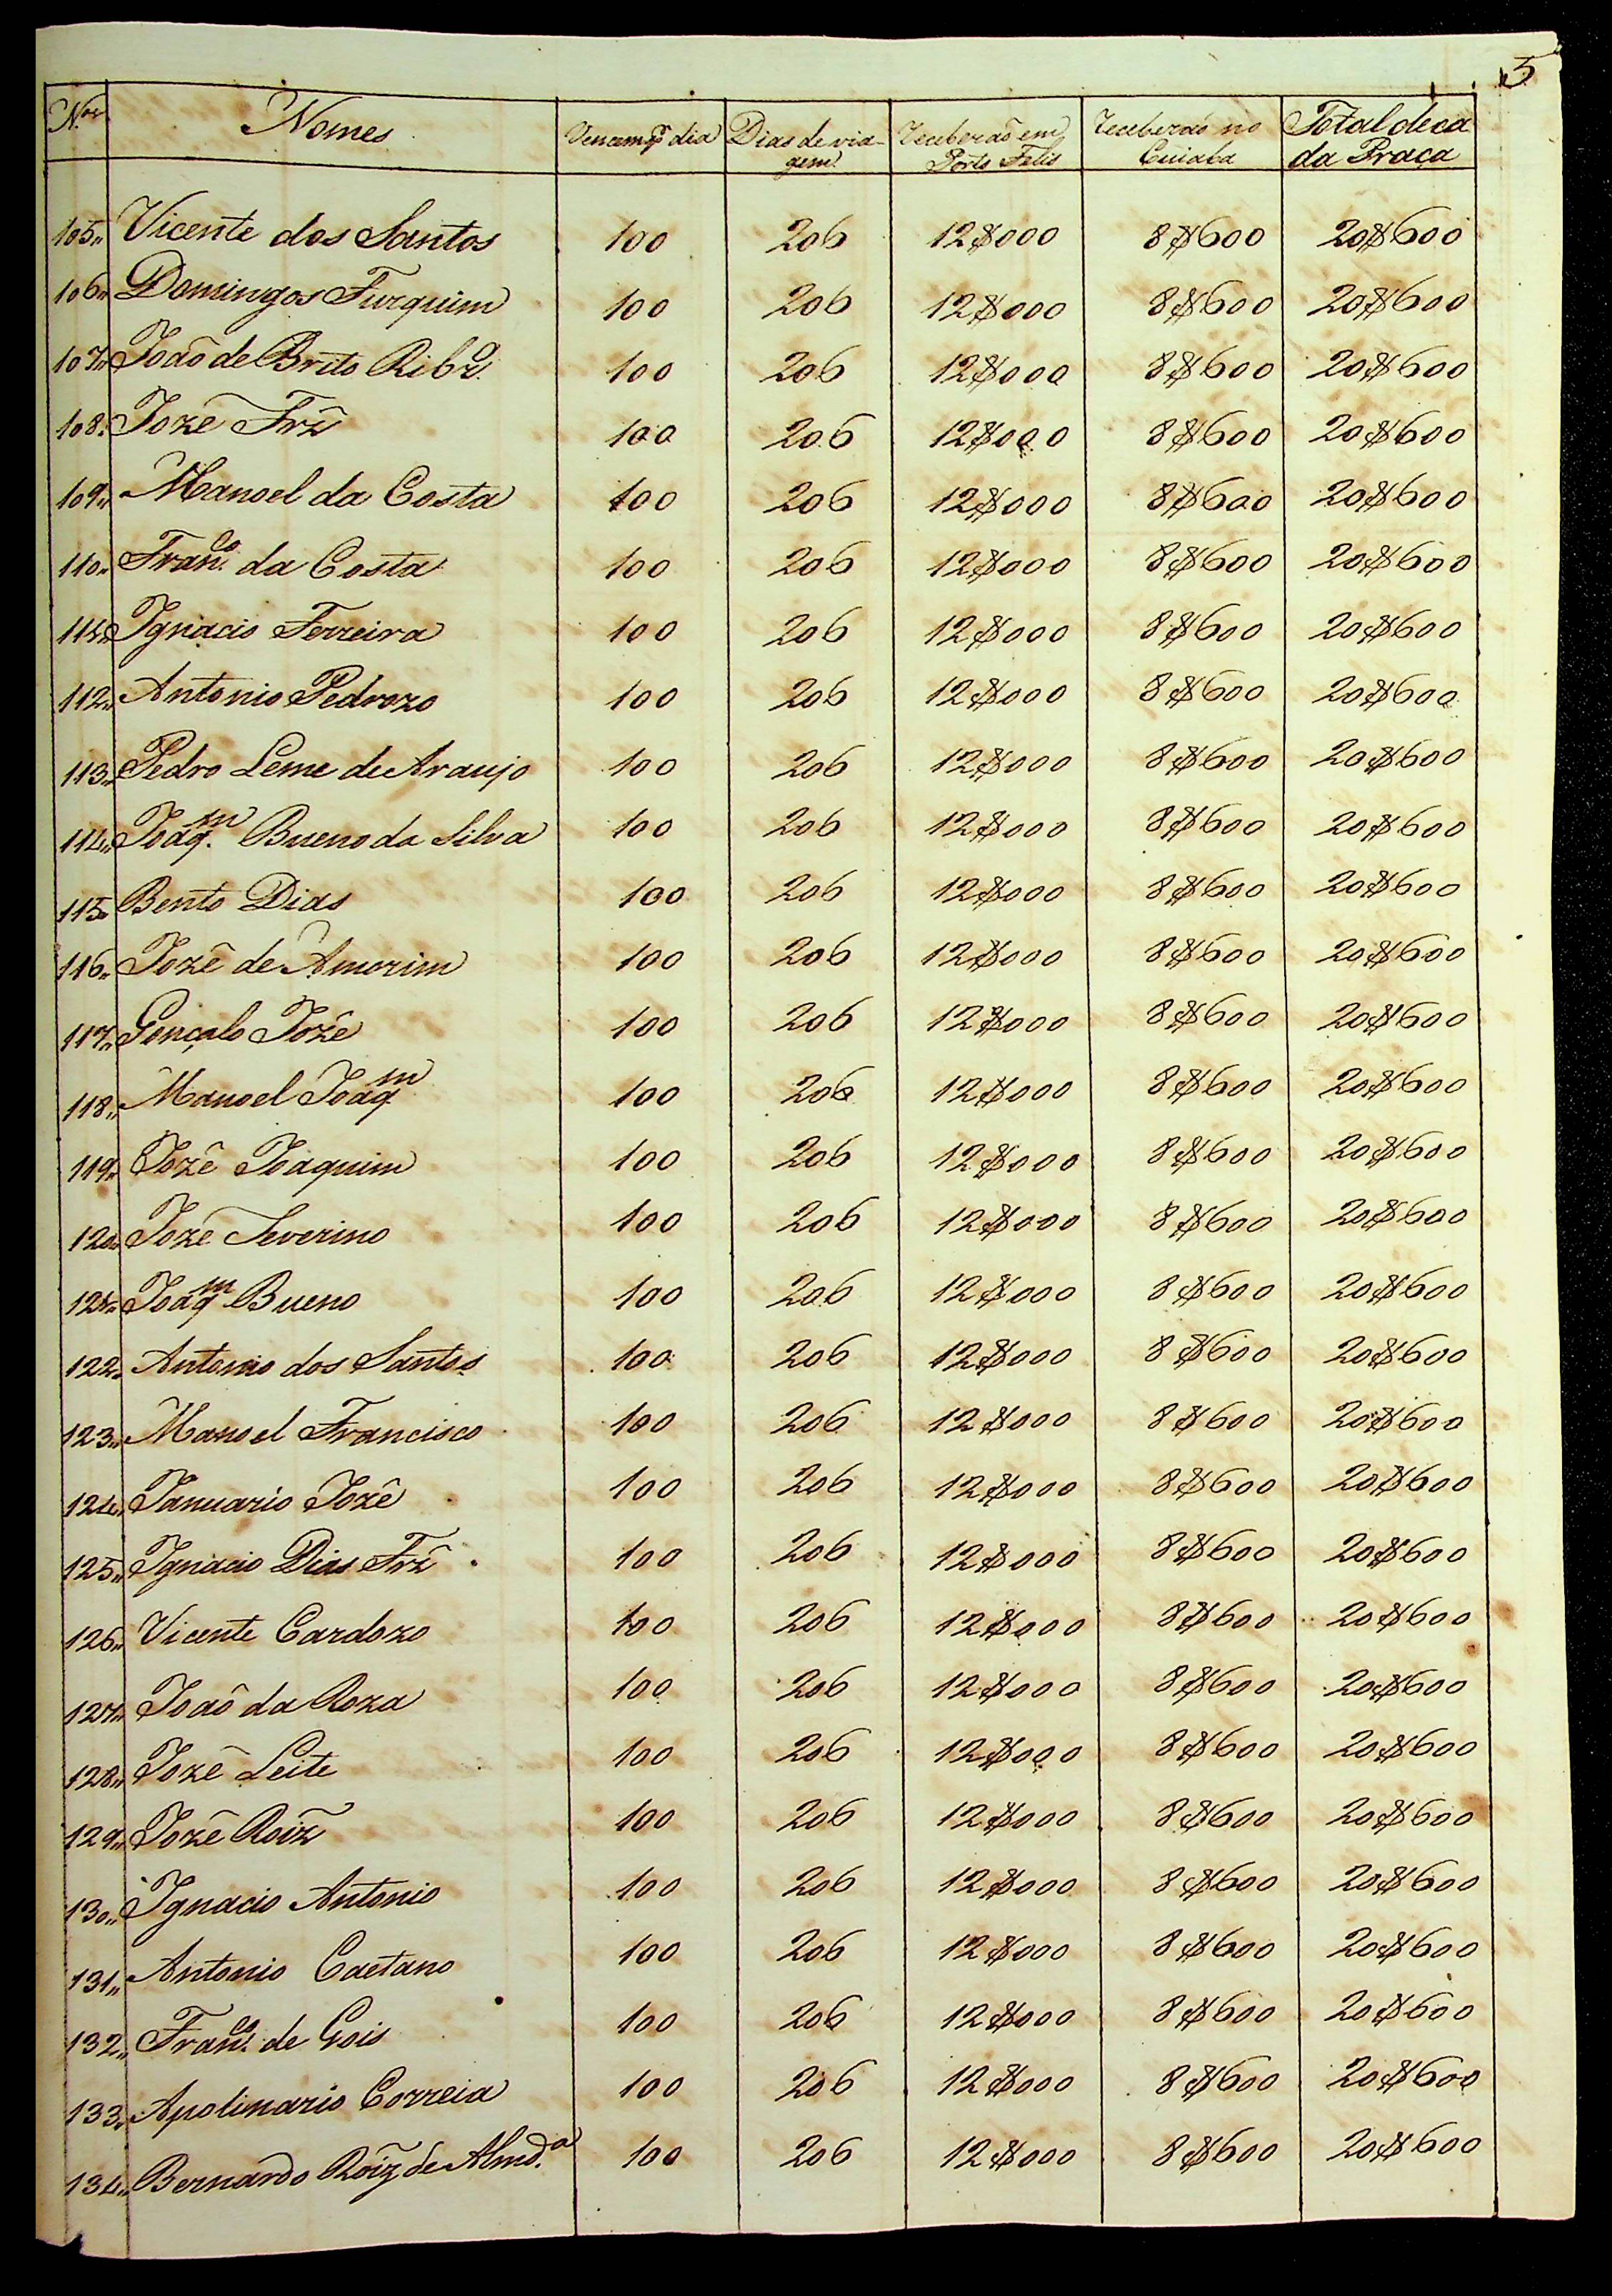 5
N.os Nomes Vencem p dia Dias de via- Receberaõ em Receberaõ no Total de ca
gem Porto Felis Cuiaba da Praça
105,, Vicente dos Santos 100 206 12$000 8$600 20$600
106,, Domingos Furquim 100 206 12$000 8$600 20$600
107,, Joaõ de Brito Ribrº 100 206 12$000 8$600 20$600
108,, Jozê Frz̃ 100 206 12$000 8$600 20$600
109,, Manoel da Costa 100 206 12$000 8$600 20$600
110,, Fran.co da Costa 100 206 12$000 8$600 20$600
111,, Ignacio Ferreira 100 206 12$000 8$600 20$600
112,, Antonio Pedrozo 100 206 12$000 8$600 20$600
113,, Pedro Leme de Araujo 100 206 12$000 8$600 20$600
114,, Joaq.m Bueno da Silva 100 206 12$000 8$600 20$600
115,, Bento Dias 100 206 12$000 8$600 20$600
116,, Jozê de Amorim 100 206 12$000 8$600 20$600
117,, Gonçalo Jozê 100 206 12$000 8$600 20$600
118,, Manoel Joaqm 100 206 12$000 8$600 20$600
119,, Jozê Joaquim 100 206 12$000 8$600 20$600
120,, Jozê Severino 100 206 12$000 8$600 20$600
121,, Joaqm Bueno 100 206 12$000 8$600 20$600
122,, Antonio dos Santos 100 206 12$000 8$600 20$600
123,, Manoel Francisco 100 206 12$000 8$600 20$600
124,, Januario Jozê 100 206 12$000 8$600 20$600
125,, Ignacio Dias Frz̃ 100 206 12$000 8$600 20$600
126,, Vicente Cardozo 100 206 12$000 8$600 20$600
127,, Joaõ da Roza 100 206 12$000 8$600 20$600
128,, Jozê Leite 100 206 12$000 8$600 20$600
129,, Jozê Roiz̃ 100 206 12$000 8$600 20$600
130,, Ignacio Antonio 100 206 12$000 8$600 20$600
131,, Antonio Caetano 100 206 12$000 8$600 20$600
132,, Fran.co de Gois 100 206 12$000 8$600 20$600
133,, Apolinario Correia 100 206 12$000 8$600 20$600
134,, Bernardo Roiz̃ de Almd.a 100 206 12$000 8$600 20$600